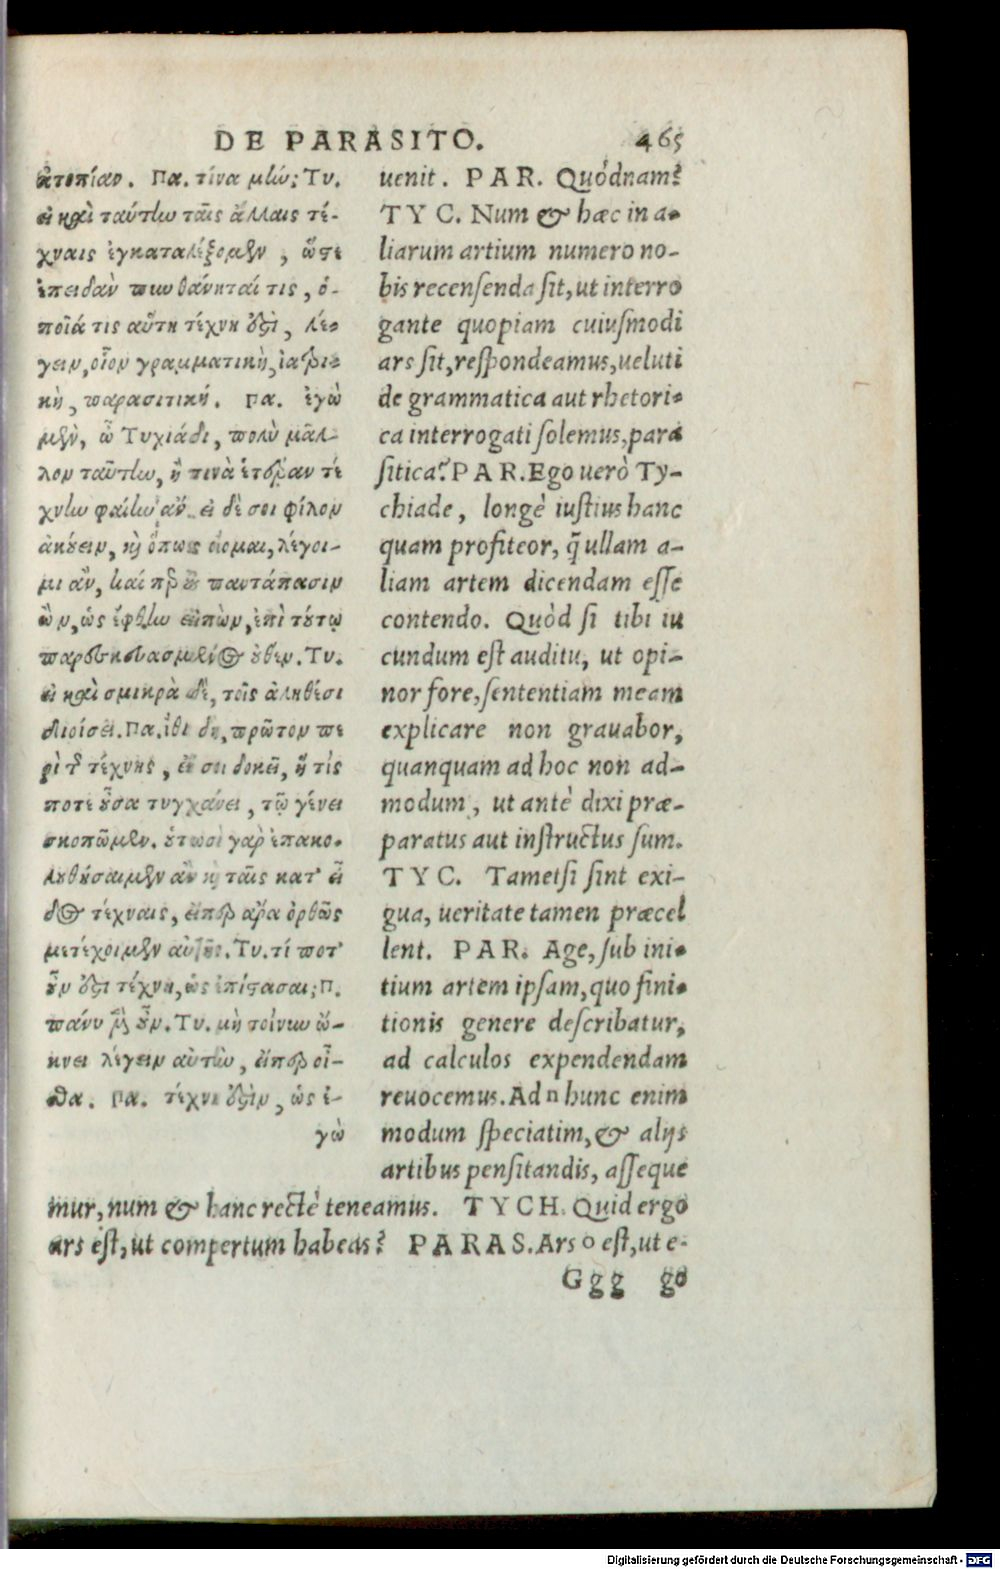 DE PARASITO. 465
ἀτοπίαν. Πα. τίνα μLώ; Τυ.
εἰ καὶ ταύτην ταῖς ἄλλαις τέ-
χναις ἐγκαταλέξομεν, ὥστε
ἐπειδὰν πυνθάνηταί τις, ὁ-
ποῖά τις αὕτη τέχνη ὅζι, λέ-
γειν, οἷον γραμματικὴ, ἰατρι-
κὴ, παρασιτική. Πα. ἐγὼ
μὲν, ὦ Τυχιάδι, πολὺ μᾶλ-
λον ταύτην, ἢ τινὰ ἑτέραν τέ
χνην φαίην ἄν. εἰ δέ σοι φίλον
ἀκούειν, καὶ ὅπως οἴομαι, λέγοι-
μι ἂν, καίπερ οὐ παντάπασιν
ὢν, ὡς ἔφθην εἰπὼν, ἐπὶ τούτῳ
παρεσκευασμένος οὐθέν. Τυ.
εἰ καὶ σμικρὰ δὲ, τοῖς ἀληθέσι
διοίσει. Πα. ἴθι δὴ, πρῶτον πε
ρὶ τῆς τέχνης, εἴ σοι δοκεῖ, ἥτις
ποτὲ οὖσα τυγχάνει, τῷ γένει
σκοπῶμεν. οὑτωσὶ γὰρ ἐπακο-
λουθήσαιμεν ἂν καὶ ταῖς κατ' εἶ
δος τέχναις, εἴπερ ἄρα ὀρθῶς
μετέχοιμεν αὐτῆς. Τυ. τί ποτ'
οὖν ἐστι τέχνη, ὡς ἐπίστασαι; Π.
πάνυ μὲν οὖν. Τυ. μὴ τοίνυν ὤ-
κνει λέγειν αὐτὴν, εἴπερ οἶ-
σθα. Πα. τέχνη ἐστὶν, ὡς ἐ-
γὼ
uenit. PAR. Quódnam?
TYC. Num & hæc in a-
liarum artium numero no-
bis recensenda sit, ut interro
gante quopiam cuiusmodi
ars sit, respondeamus, ueluti
de grammatica aut rhetori-
ca interrogati solemus, para
sitica? PAR. Ego uerò Ty-
chiade, longè iustius hanc
quam profiteor, q̃ ullam a-
liam artem dicendam esse
contendo. Quòd si tibi iu
cundum est auditu, ut opi-
nor fore, sententiam meam
explicare non grauabor,
quanquam ad hoc non ad-
modum, ut antè dixi præ-
paratus aut instructus sum.
TYC. Tametsi sint exi-
gua, ueritate tamen præcel
lent. PAR. Age, sub ini-
tium artem ipsam, quo fini-
tionis genere describatur,
ad calculos expendendam
reuocemus. Ad n hunc enim
modum speciatim, & alijs
artibus pensitandis, asseque
mur, num & hanc rectè teneamus. TYCH. Quid ergo
ars est, ut compertum habeas? PARAS. Ars o est, ut e-
Ggg go
Digitalisierung gefördert durch die Deutsche Forschungsgemeinschaft - DFG